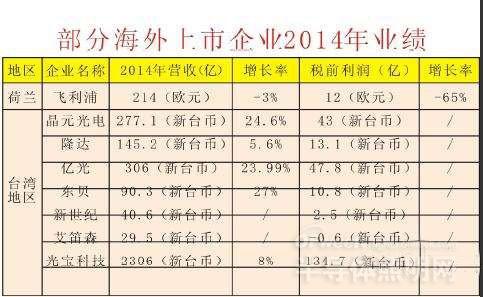 部分海外上市企业2014年业绩
地区 企业名称 2014年营收(亿) 增长率 税前利润（亿） 增长率
荷兰 飞利浦 214（欧元） -3% 12（欧元） -65%
台湾地区 晶元光电 277.1（新台币） 24.6% 43（新台币） /
隆达 145.2（新台币） 5.6% 13.1（新台币） /
亿光 306（新台币） 23.99% 47.8（新台币） /
东贝 90.3（新台币） 27% 10.8（新台币） /
新世纪 40.6（新台币） / 2.5（新台币） /
艾笛森 29.5（新台币） / 0.6（新台币） /
光宝科技 2306（新台币） 8% 134.7（新台币） /
半导体照明网